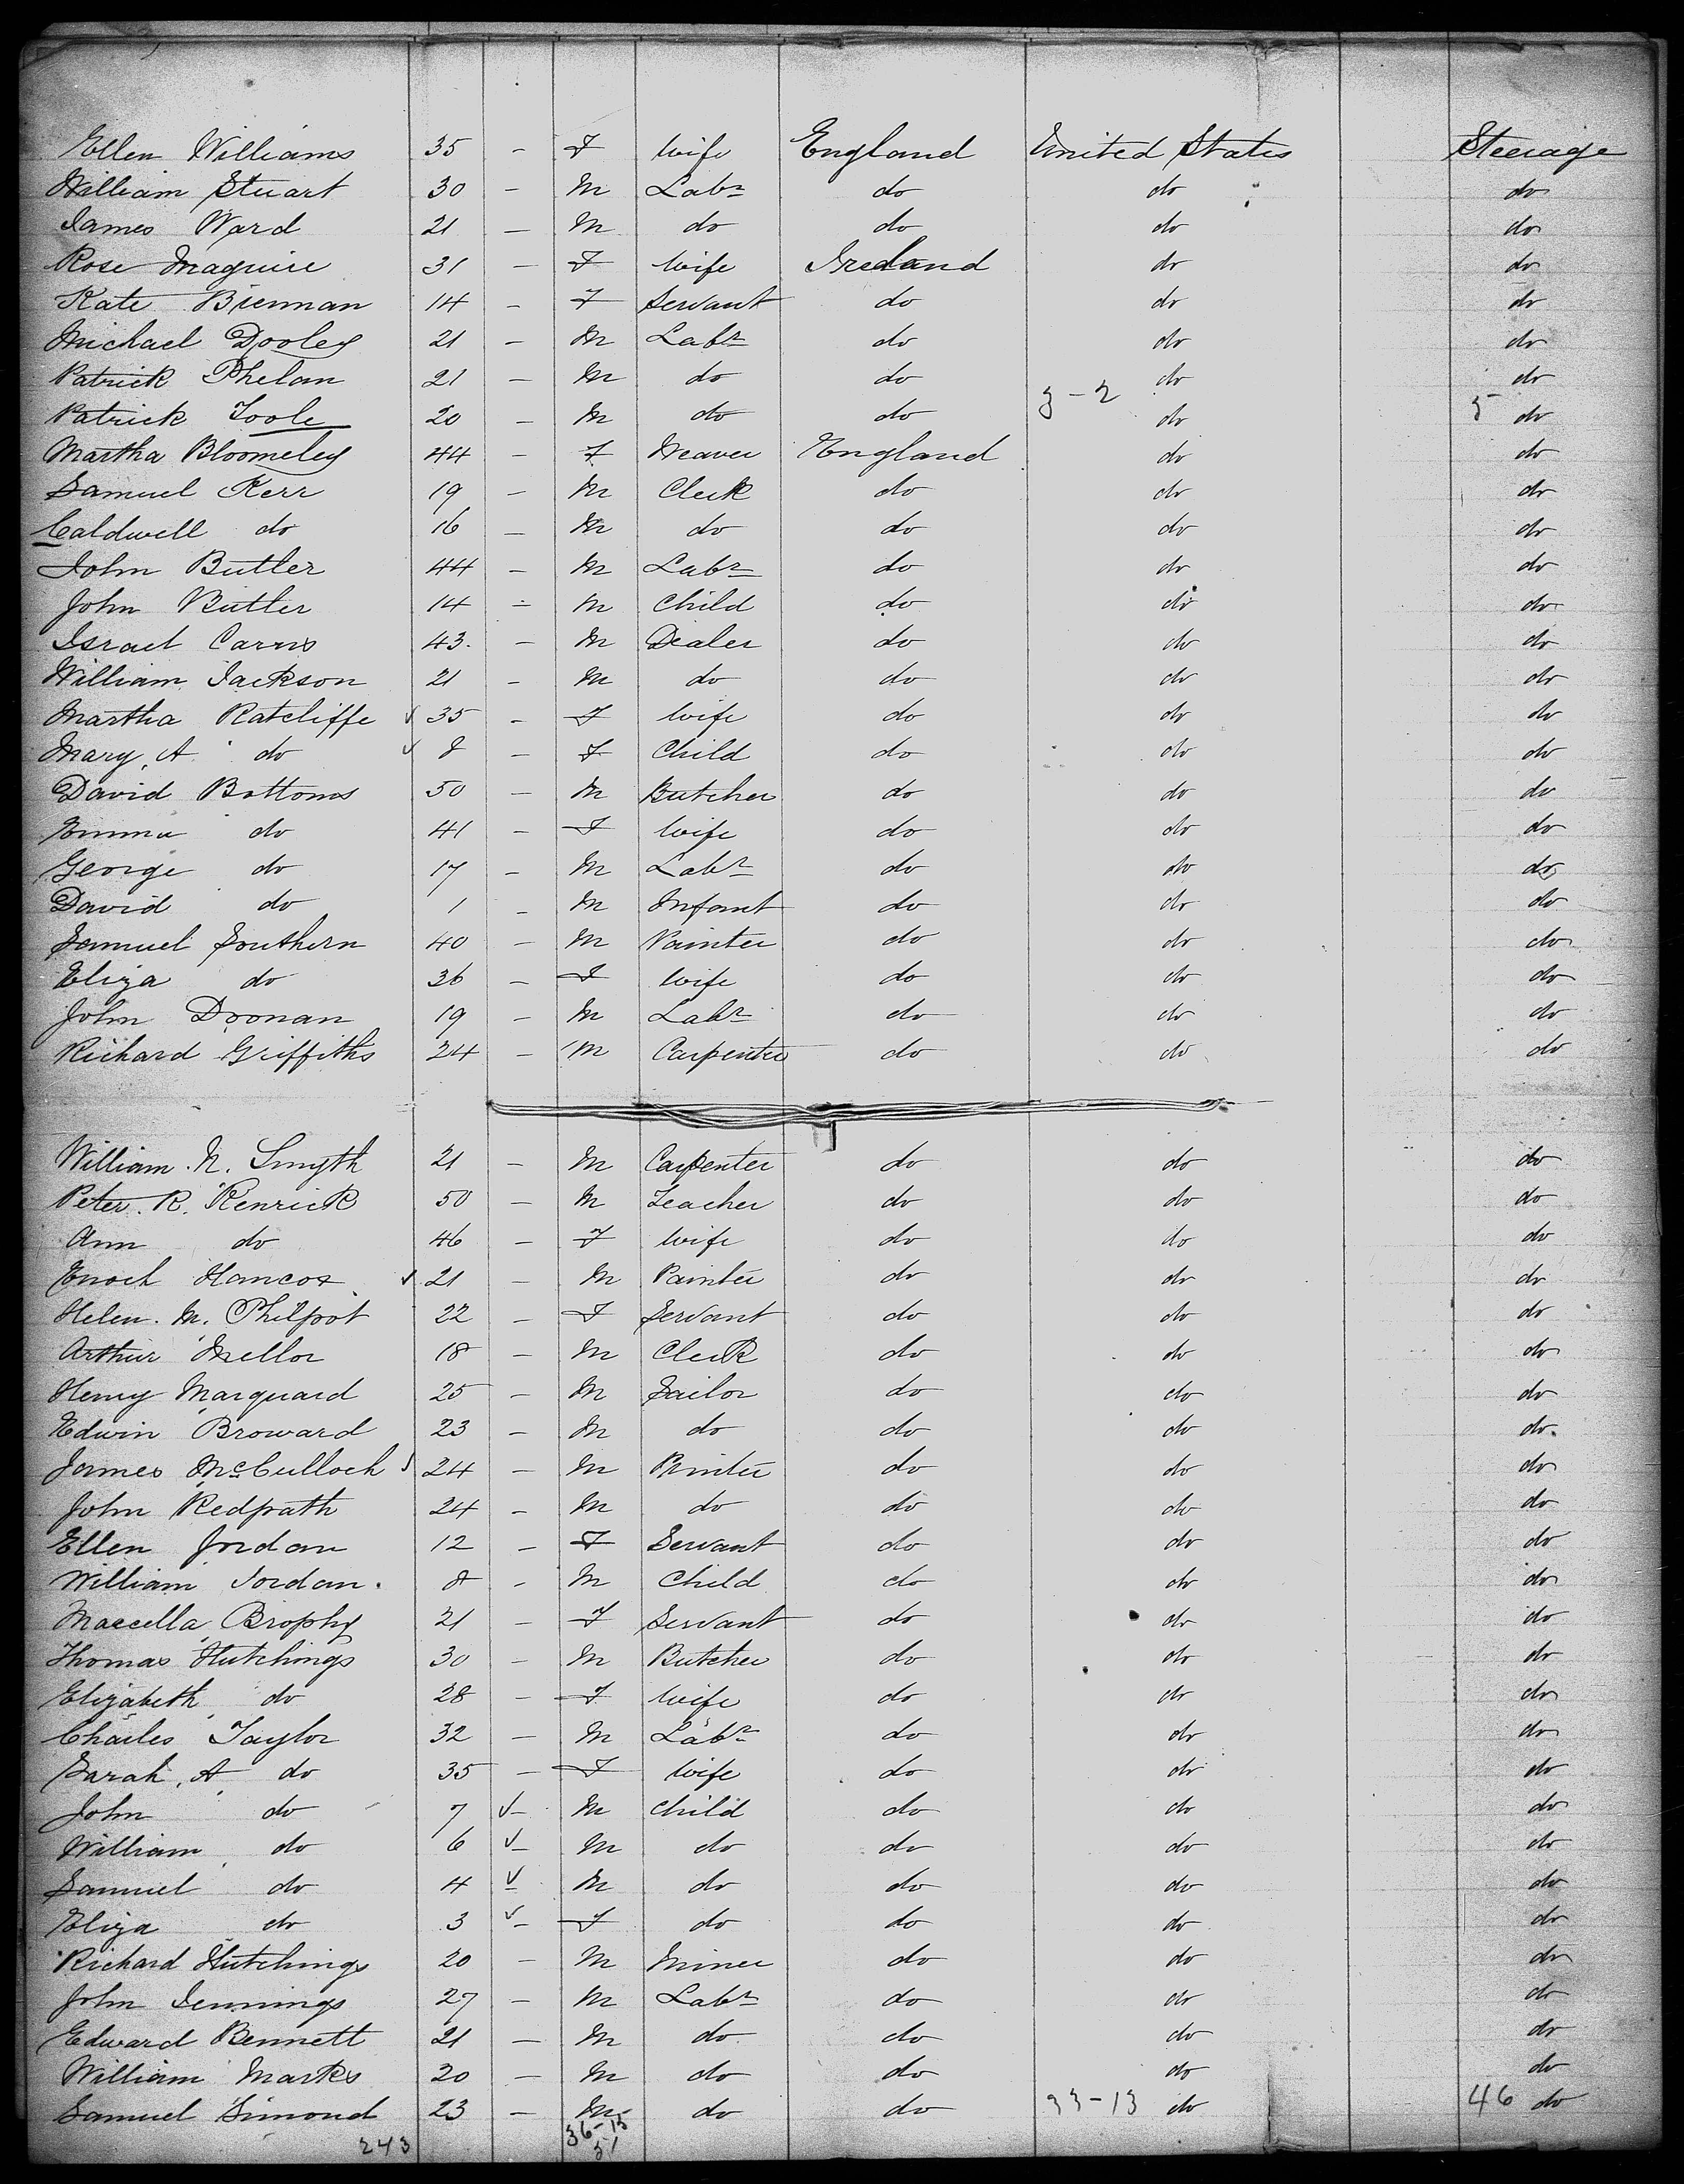 Ellen Williams 35 - F Wife England United States Steerage
William Stuart 30 - M Labr do do do
James Ward 21 - M do do do do
Rose Maguire 31 - F Wife Ireland do do
Kate Brennan 14 - F Servant do do do
Michael Dooley 21 - M Labr do do do
Patrick Phelan 21 - M do do do do
Patrick Toole 20 - M do do 3-2 do 5 do
Martha Bloomeley 44 - F Weaver England do do
Samuel Kerr 19 - M Clerk do do do
Caldwell do 16 - M do do do do
John Butler 44 - M Labr do do do
John Butler 14 - M Child do do do
Israel Carns 43 - M Dealer do do do
William Jackson 21 - M do do do do
Martha Ratcliffe 35 - F Wife do do do
Mary, A do 8 - F Child do do do
David Bottoms 50 - M Butcher do do do
Emma do 41 - F Wife do do do
George do 17 - M Labr do do do
David do 1 - M Infant do do do
Samuel Southern 40 - M Painter do do do
Eliza do 36 - F Wife do do do
John Doonan 19 - M Labr do do do
Richard Griffiths 24 - M Carpenter do do do
William. N. Smyth 21 - M Carpenter do do do
Peter. R. Kenrick 50 - M Teacher do do do
Ann do 46 - F Wife do do do
Enoch Hancox 21 - M Painter do do do
Helen. M. Philpot 22 - F Servant do do do
Arthur Mellor 18 - M Clerk do do do
Henry Marquard 25 - M Sailor do do do
Edwin Broward 23 - M do do do do
James McCulloch 24 - M Printer do do do
John Redpath 24 - M do do do do
Ellen Jordan 12 - F Servant do do do
William Jordan. 8 - M Child do do do
Marcella Brophy 21 - F Servant do do do
Thomas Hutchings 30 - M Butcher do do do
Elizabeth do 28 - F Wife do do do
Charles Taylor 32 - M Labr do do do
Sarah, A do 35 - F Wife do do do
John do 7 - M Child do do do
William do 6 - M do do do do
Samuel do 4 - M do do do do
Eliza do 3 - F do do do do
Richard Hutchings 20 - M Miner do do do
John Jennings 27 - M Labr do do do
Edward Bennett 21 - M do do do do
William Marks 20 - M do do do do
Samuel Simond 23 - M do do 33-13 do 46 do
243 36-15
51